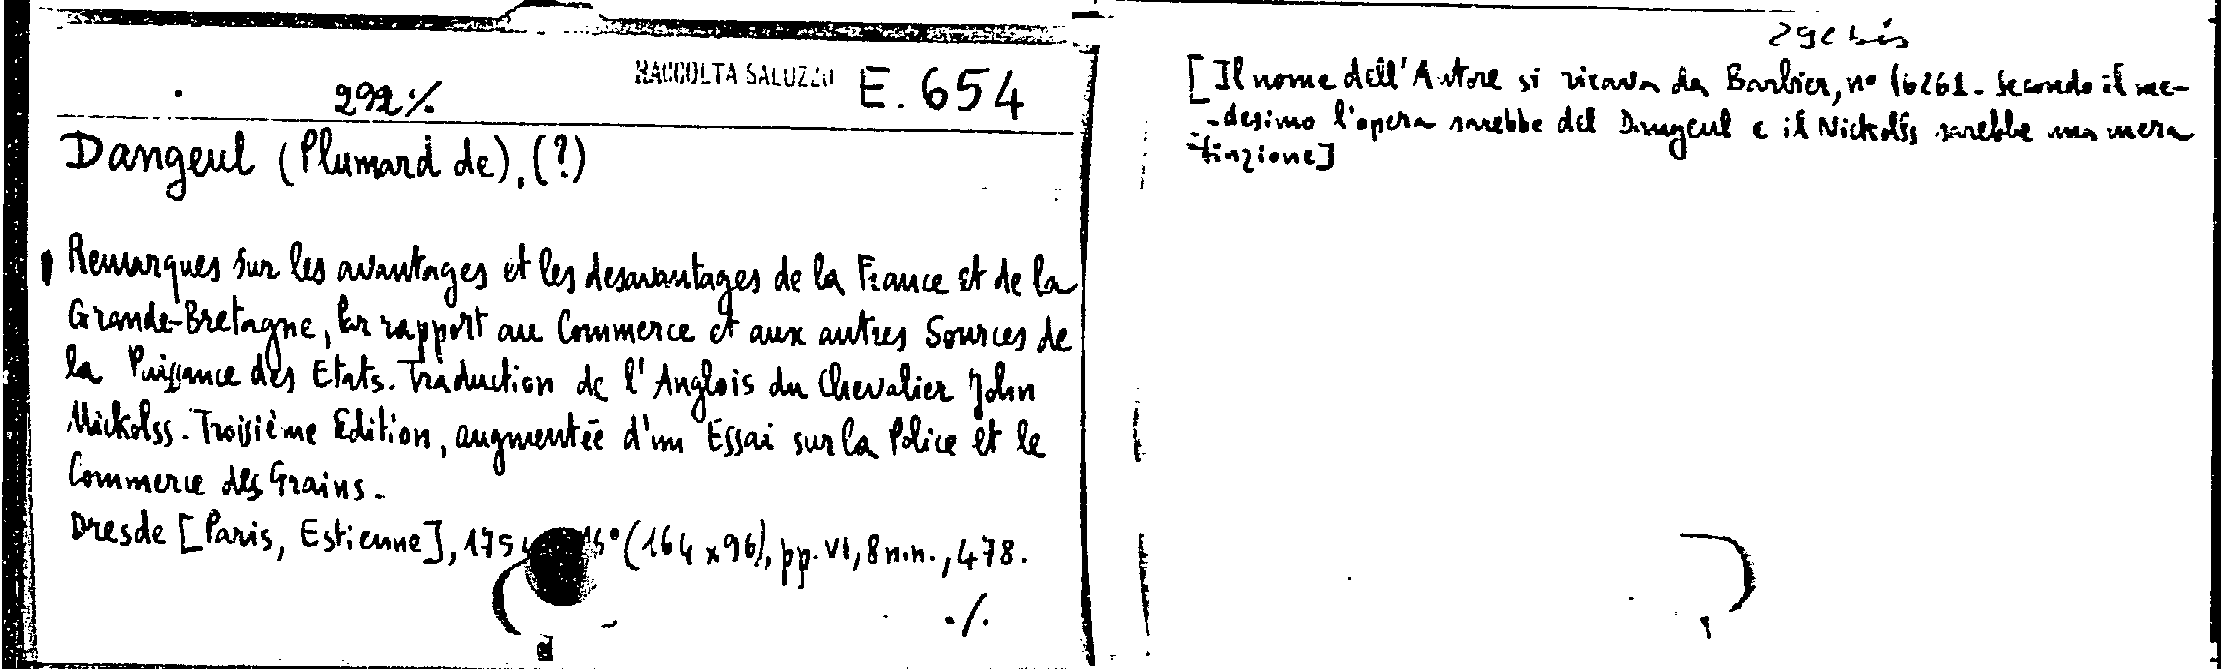 292 %
RACCOLTA SALUZZO E. 654
Dangeul (Plumard de), (?)
Remarques sur les avantages et les desavantages de la France et de la
Grande-Bretagne, par rapport au Commerce et aux autres Sources de
la Puissance des Etats. Traduction de l'Anglois du Chevalier John
Nickolss. Troisième Edition, augmentée d'un Essai sur la Police et le
Commerce des Grains.
Dresde [Paris, Estienne], 1754 16° (164 x 96), pp. VI, 8 n.n., 478.
./.
292 bis
[Il nome dell'Autore si ricava da Barbier, n° 16261. Secondo il me-
desimo l'opera sarebbe del Dangeul e il Nickolss sarebbe una mera
finzione]